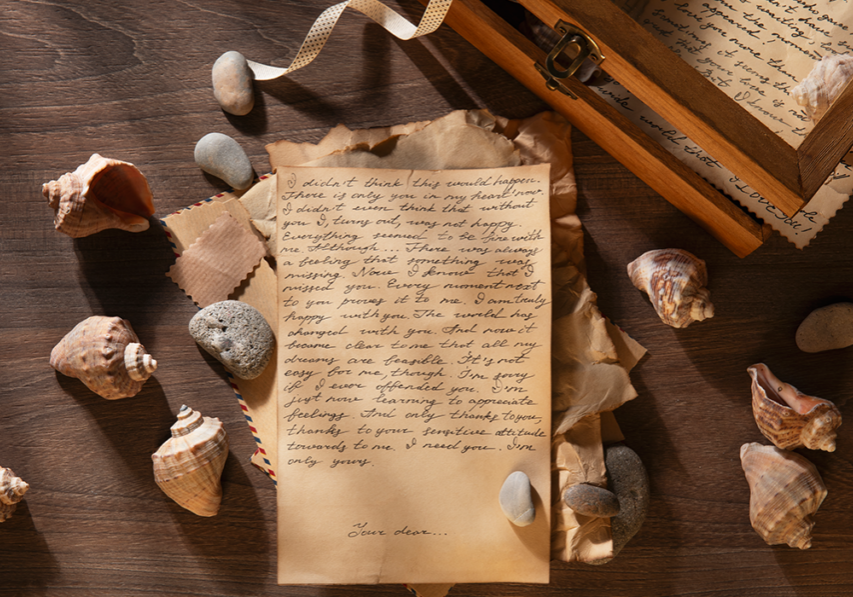 I didn't think this would happen.
There is only you in my heart now.
I didn't even think that without
you I, turns out, was not happy.
Everything seemed to be fine with
me. Although... There was always
a feeling that something was
missing. Now I know that I
missed you. Every moment next
to you proves it to me. I am truly
happy with you. The world has
changed with you. And now it
became clear to me that all my
dreams are feasible. It's not
easy for me, though. I'm sorry
if I ever offended you. I'm
just now learning to appreciate
feelings. And only thanks to you,
thanks to your sensitive attitude
towards to me. I need you. I'm
only yours.
Your dear...
appeared.
world that
I Love You!